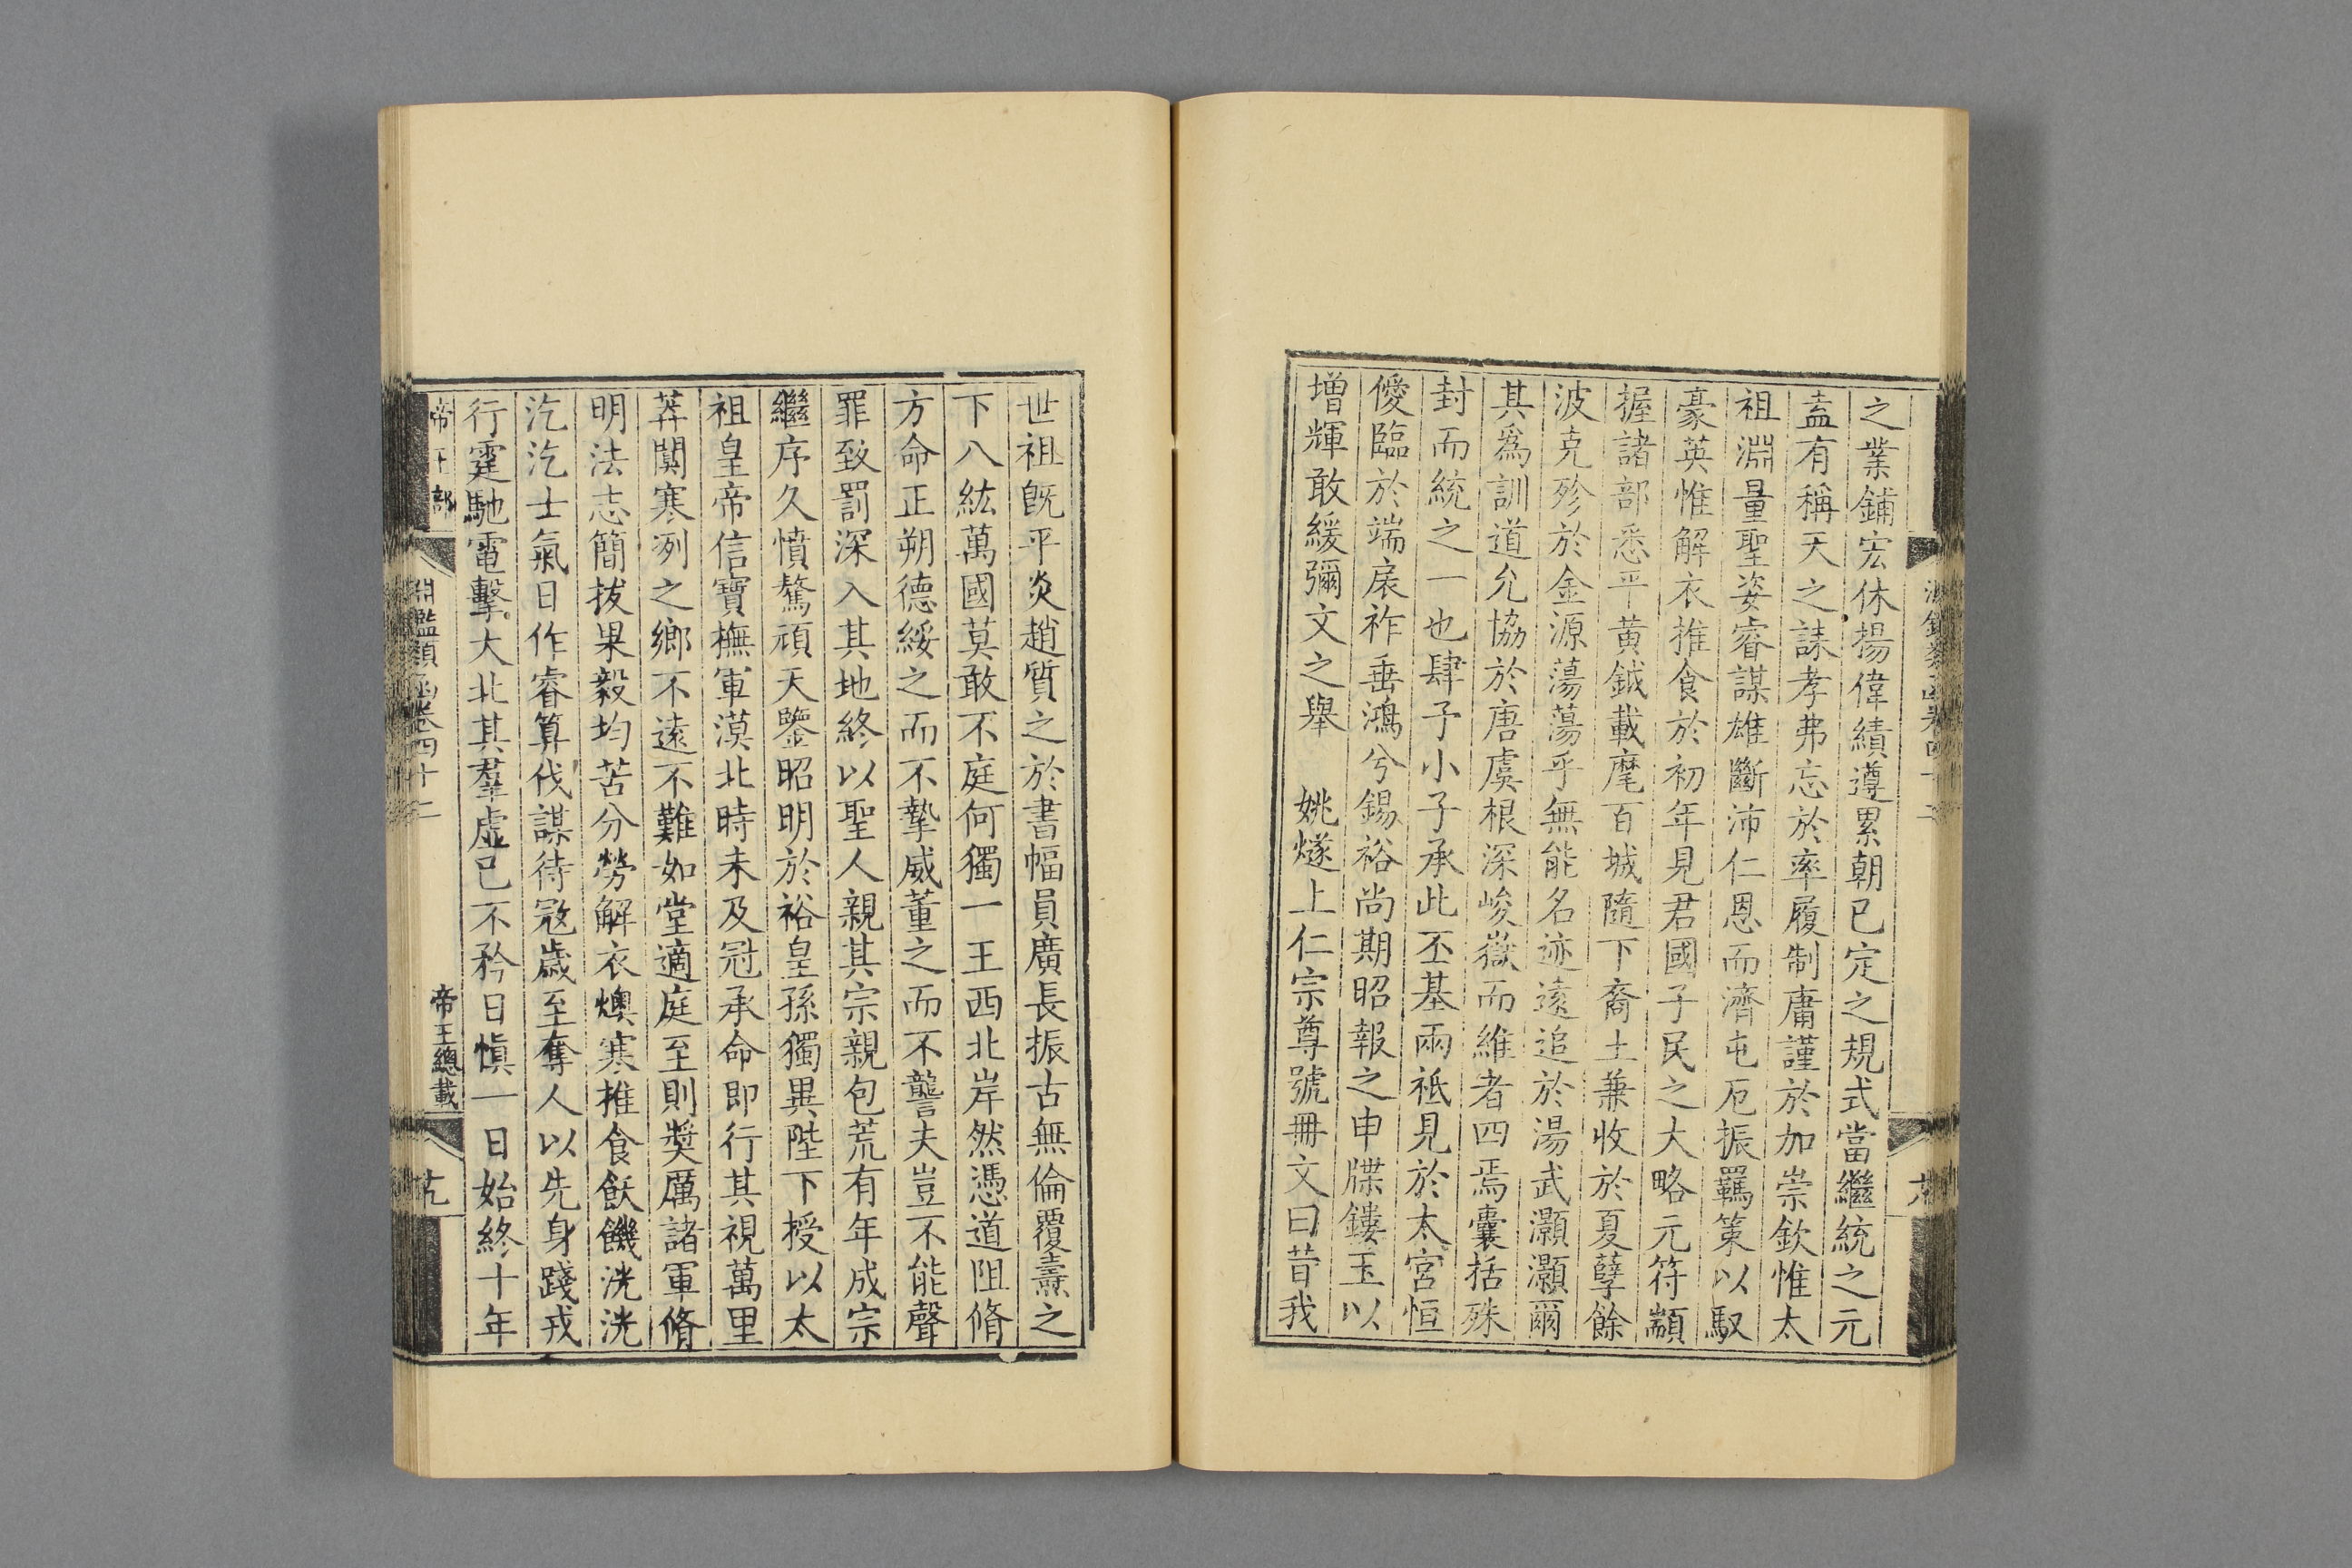 之業鋪宏休揚偉績遵累朝已定之規式當繼統之元
盍有稱天之誄孝弗忘於率履制庸謹於加崇欽惟太
祖淵量聖姿睿謀雄斷沛仁恩而濟屯厄振羈策以馭
豪英惟解衣推食於初年見君國子民之大略元符顓
握諸部悉平黃鉞載麾百城隨下裔土兼收於夏孽餘
波克殄於金源蕩蕩乎無能名迹遠追於湯武灝灝爾
其爲訓道允協於唐虞根深峻嶽而維者四焉囊括殊
封而統之一也肆予小子承此丕基兩祗見於太宮恒
僾臨於端扆祚垂鴻兮錫裕尚期昭報之申牒鏤玉以
增輝敢緩彌文之舉 姚燧上仁宗尊號冊文曰昔我
世祖旣平炎趙質之於書幅員廣長振古無倫覆燾之
下八紘萬國莫敢不庭何獨一王西北岸然憑道阻脩
方命正朔德綏之而不摯威董之而不讋夫豈不能聲
罪致罰深入其地終以聖人親其宗親包荒有年成宗
繼序久憤驁頑天鑒昭明於裕皇孫獨異陛下授以太
祖皇帝信寶撫軍漠北時未及冠承命即行其視萬里
莽闃寒冽之鄉不遠不難如堂適庭至則獎厲諸軍脩
明法志簡拔果毅均苦分勞解衣燠寒推食飫饑洸洸
汔汔士氣日作睿算伐謀待寇歲至奪人以先身踐戎
行霆馳電擊大北其羣虛已不矜日愼一日始終十年
帝王部 淵鑑類函卷四十二 帝王總載 先